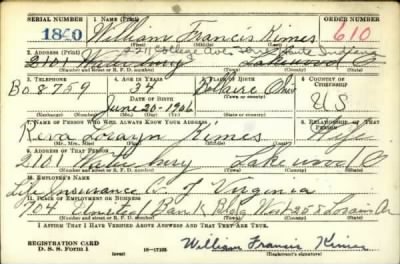 SERIAL NUMBER 1. NAME (Print) ORDER NUMBER
1840 William Francis Kimes 610
(First) (Middle) (Last)
221 College Ave Terre Haute Indiana
2. ADDRESS (Print)
2101 Waterbury Lakewood O
(Number and street or R. F. D. number) (Town) (County) (State)
3. TELEPHONE 4. AGE IN YEARS 5. PLACE OF BIRTH 6. COUNTRY OF CITIZENSHIP
Bo 8759 34 Bellaire Ohio
DATE OF BIRTH (Town or county)
June 20-1906 U S
(Exchange) (Number) (Mo.) (Day) (Yr.) (State or country)
7. NAME OF PERSON WHO WILL ALWAYS KNOW YOUR ADDRESS 8. RELATIONSHIP OF THAT PERSON
Reva Lorayn Kimes Wife
(Mr., Mrs., Miss) (First) (Middle) (Last)
9. ADDRESS OF THAT PERSON
2101 Waterbury Lakewood O
(Number and street or R. F. D. number) (Town) (County) (State)
10. EMPLOYER'S NAME
Life Insurance Co of Virginia
11. PLACE OF EMPLOYMENT OR BUSINESS
704 United Bank Bldg West 25 & Lorain Av
(Number and street or R. F. D. number) (Town) (County) (State)
I AFFIRM THAT I HAVE VERIFIED ABOVE ANSWERS AND THAT THEY ARE TRUE.
REGISTRATION CARD
D. S. S. Form 1 (over) William Francis Kimes
(Registrant's signature)